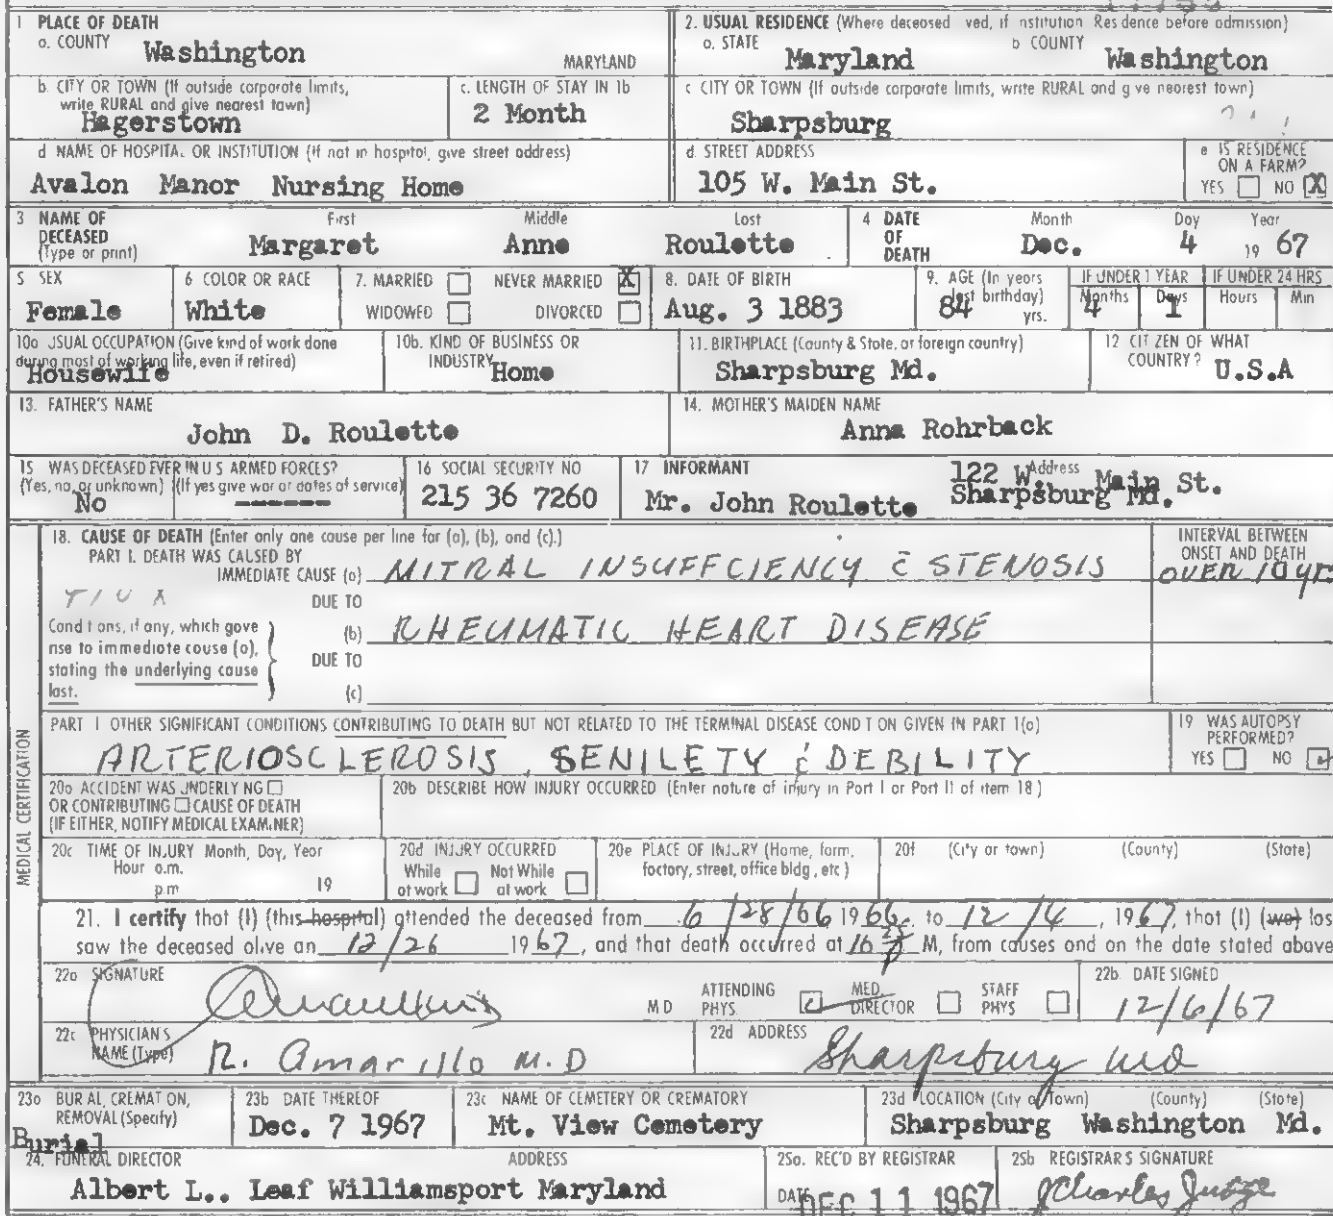 1 PLACE OF DEATH
a. COUNTY Washington MARYLAND
2. USUAL RESIDENCE (Where deceosed ved, if nstitution Res dence before admission)
a. STATE Maryland b COUNTY Washington
b. CITY OR TOWN (If outside corporate limits, write RURAL and give nearest town) Hagerstown
c. LENGTH OF STAY IN 1b 2 Month
c CITY OR TOWN (If outside corporate limits, write RURAL and g ve nearest town) Sharpsburg
d NAME OF HOSPITAL OR INSTITUTION (If not in hospital, give street address)
Avalon Manor Nursing Home
d. STREET ADDRESS 105 W. Main St.
e IS RESIDENCE ON A FARM? YES NO X
3 NAME OF DECEASED (Type or print) First Margaret Middle Anne Last Roulette
4 DATE OF DEATH Month Dec. Day 4 Year 19 67
5 SEX Female
6 COLOR OR RACE White
7. MARRIED NEVER MARRIED X WIDOWED DIVORCED
8. DATE OF BIRTH Aug. 3 1883
9. AGE (In years last birthday) 84 yrs.
IF UNDER 1 YEAR Months 4 Days 1
IF UNDER 24 HRS Hours Min
10a USUAL OCCUPATION (Give kind of work done during most of working life, even if retired) Housewife
10b. KIND OF BUSINESS OR INDUSTRY Home
11. BIRTHPLACE (County & State, or foreign country) Sharpsburg Md.
12 CIT ZEN OF WHAT COUNTRY? U.S.A
13. FATHER'S NAME John D. Roulette
14. MOTHER'S MAIDEN NAME Anna Rohrback
15 WAS DECEASED EVER IN U S ARMED FORCES? (Yes, no, or unknown) (If yes give war or dates of service) No
16 SOCIAL SECURITY NO 215 36 7260
17 INFORMANT Mr. John Roulette Address 122 W. Main St. Sharpsburg Md.
MEDICAL CERTIFICATION
18. CAUSE OF DEATH (Enter only one cause per line for (a), (b), and (c).)
PART I. DEATH WAS CAUSED BY
IMMEDIATE CAUSE (a) MITRAL INSUFFCIENCY c̄ STENOSIS
INTERVAL BETWEEN ONSET AND DEATH OVER 10 yrs
DUE TO
Cond t ons, if any, which gave rise to immediate cause (a), stating the underlying cause last.
(b) RHEUMATIC HEART DISEASE
DUE TO
(c)
PART I OTHER SIGNIFICANT CONDITIONS CONTRIBUTING TO DEATH BUT NOT RELATED TO THE TERMINAL DISEASE COND T ON GIVEN IN PART 1(a)
ARTERIOSCLEROSIS, SENILETY & DEBILITY
19 WAS AUTOPSY PERFORMED? YES NO
20a ACCIDENT WAS UNDERLY NG OR CONTRIBUTING CAUSE OF DEATH (IF EITHER, NOTIFY MEDICAL EXAMINER)
20b DESCRIBE HOW INJURY OCCURRED (Enter nature of injury in Port I or Port II of item 18)
20c TIME OF INJURY Month, Day, Year Hour a.m. p m 19
20d INJURY OCCURRED While at work Not While at work
20e PLACE OF INJURY (Home, farm, factory, street, office bldg, etc)
20f (City or town) (County) (State)
21. I certify that (I) (this hospital) attended the deceased from 6/28/66 1966, to 12/4, 1967, that (I) (we) los
saw the deceased alive an 12/26 1967, and that death occurred at M, from causes and on the date stated above
22a SIGNATURE M D ATTENDING PHYS MED. DIRECTOR STAFF PHYS
22b. DATE SIGNED 12/6/67
22c PHYSICIAN'S NAME (Type) R. Amarillo M.D
22d ADDRESS Sharpsburg Md
23a BUR AL, CREMAT ON, REMOVAL (Specify) Burial
23b DATE THEREOF Dec. 7 1967
23c NAME OF CEMETERY OR CREMATORY Mt. View Cemetery
23d LOCATION (City or Town) (County) (State) Sharpsburg Washington Md.
24. FUNERAL DIRECTOR ADDRESS
Albert L.. Leaf Williamsport Maryland
25a. REC'D BY REGISTRAR DATE DEC 11 1967
25b REGISTRAR'S SIGNATURE J Charles Judge